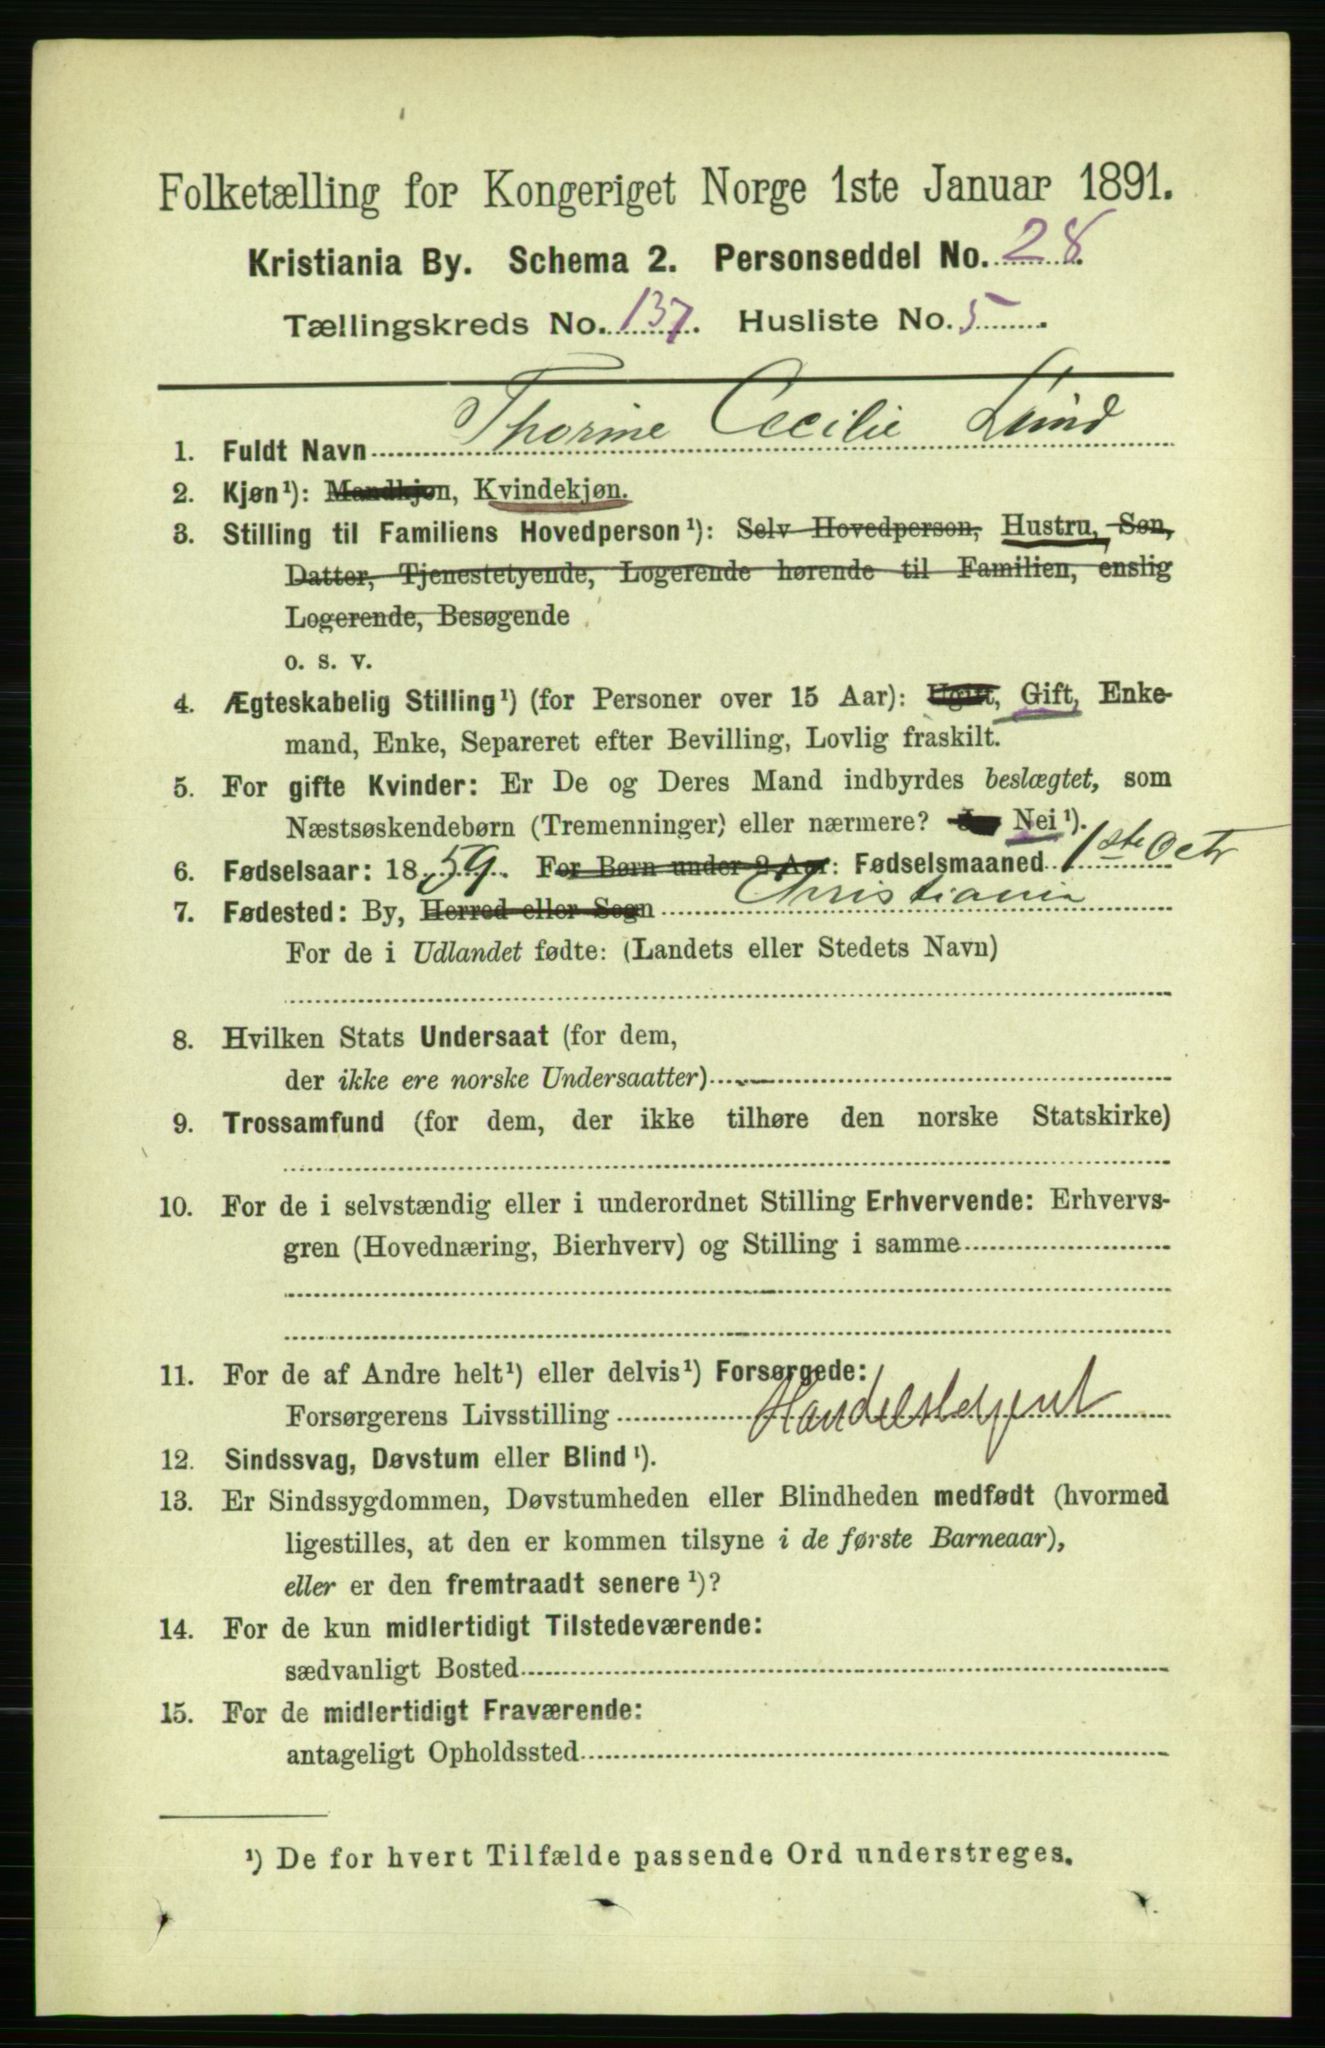 Folketælling for Kongeriget Norge 1ste Januar 1891.
Kristiania By. Schema 2. Personseddel No. 28.
Tællingskreds No. 137. Husliste No. 5.
1. Fuldt Navn Thorine Cecilie Lund
2. Kjøn¹): Mandkjøn, Kvindekjøn.
3. Stilling til Familiens Hovedperson¹): Selv Hovedperson, Hustru, Søn,
Datter, Tjenestetyende, Logerende hørende til Familien, enslig
Logerende, Besøgende
o. s. v.
4. Ægteskabelig Stilling¹) (for Personer over 15 Aar): Ugift, Gift, Enke-
mand, Enke, Separeret efter Bevilling, Lovlig fraskilt.
5. For gifte Kvinder: Er De og Deres Mand indbyrdes beslægtet, som
Næstsøskendebørn (Tremenninger) eller nærmere? Ja, Nei¹).
6. Fødselsaar: 1859. For Børn under 2 Aar: Fødselsmaaned 1ste Octr
7. Fødested: By, Herred eller Sogn Christiania
For de i Udlandet fødte: (Landets eller Stedets Navn)
8. Hvilken Stats Undersaat (for dem,
der ikke ere norske Undersaatter)
9. Trossamfund (for dem, der ikke tilhøre den norske Statskirke)
10. For de i selvstændig eller i underordnet Stilling Erhvervende: Erhvervs-
gren (Hovednæring, Bierhverv) og Stilling i samme
11. For de af Andre helt¹) eller delvis¹) Forsørgede:
Forsørgerens Livsstilling Handelsbetjent
12. Sindssvag, Døvstum eller Blind¹).
13. Er Sindssygdommen, Døvstumheden eller Blindheden medfødt (hvormed
ligestilles, at den er kommen tilsyne i de første Barneaar),
eller er den fremtraadt senere¹)?
14. For de kun midlertidigt Tilstedeværende:
sædvanligt Bosted
15. For de midlertidigt Fraværende:
antageligt Opholdssted
¹) De for hvert Tilfælde passende Ord understreges.